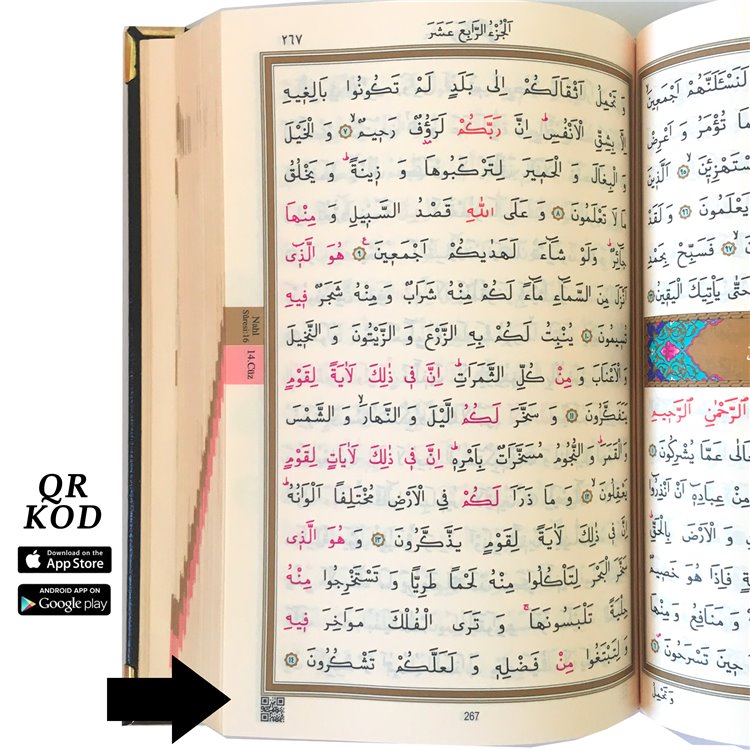 ٢٦٧
اَلْجُزْءُ الرَّابِعَ عَشَرَ
وَ تَحْمِلُ اَثْقَالَكُمْ اِلٰى بَلَدٍ لَمْ تَكُونُوا بَالِغ۪يهِ
اِلَّا بِشِقِّ الْاَنْفُسِۜ اِنَّ رَبَّكُمْ لَرَؤُ۫فٌ رَح۪يمٌۙ ﴿٧﴾ وَ الْخَيْلَ
وَ الْبِغَالَ وَ الْحَم۪يرَ لِتَرْكَبُوهَا وَ ز۪ينَةًۜ وَ يَخْلُقُ
مَا لَا تَعْلَمُونَ ﴿٨﴾ وَ عَلَى اللّٰهِ قَصْدُ السَّب۪يلِ وَ مِنْهَا
جَٓائِرٌۜ وَلَوْ شَٓاءَ لَهَدٰيكُمْ اَجْمَع۪ينَ۟ ﴿٩﴾ هُوَ الَّذ۪ٓي
اَنْزَلَ مِنَ السَّمَٓاءِ مَٓاءً لَكُمْ مِنْهُ شَرَابٌ وَ مِنْهُ شَجَرٌ ف۪يهِ
تُس۪يمُونَ ﴿١٠﴾ يُنْبِتُ لَكُمْ بِهِ الزَّرْعَ وَ الزَّيْتُونَ وَ النَّخ۪يلَ
وَ الْاَعْنَابَ وَ مِنْ كُلِّ الثَّمَرَاتِۜ اِنَّ ف۪ي ذٰلِكَ لَاٰيَةً لِقَوْمٍ
يَتَفَكَّرُونَ ﴿١١﴾ وَ سَخَّرَ لَكُمُ الَّيْلَ وَ النَّهَارَۙ وَ الشَّمْسَ
وَ الْقَمَرَۜ وَ النُّجُومُ مُسَخَّرَاتٌ بِاَمْرِه۪ۜ اِنَّ ف۪ي ذٰلِكَ لَاٰيَاتٍ لِقَوْمٍ
يَعْقِلُونَۙ ﴿١٢﴾ وَ مَا ذَرَاَ لَكُمْ فِي الْاَرْضِ مُخْتَلِفًا اَلْوَانُهُۜ
اِنَّ ف۪ي ذٰلِكَ لَاٰيَةً لِقَوْمٍ يَذَّكَّرُونَ ﴿١٣﴾ وَ هُوَ الَّذ۪ي
سَخَّرَ الْبَحْرَ لِتَأْكُلُوا مِنْهُ لَحْمًا طَرِيًّا وَ تَسْتَخْرِجُوا مِنْهُ
حِلْيَةً تَلْبَسُونَهَاۚ وَ تَرَى الْفُلْكَ مَوَاخِرَ ف۪يهِ
وَ لِتَبْتَغُوا مِنْ فَضْلِه۪ وَ لَعَلَّكُمْ تَشْكُرُونَ ﴿١٤﴾
267
Nahl
Sûresi:16
14.Cüz
QR
KOD
Download on the
App Store
ANDROID APP ON
Google play
لَنَسْـَٔلَنَّهُمْ اَجْمَع۪ينَ
تُؤْمَرُ وَ اَعْرِضْ
﴿٩٥﴾ اَلَّذ۪ينَ
يَعْلَمُونَ ﴿٩٦﴾ وَ لَقَدْ
﴿٩٧﴾ فَسَبِّحْ بِحَمْدِ
حَتّٰى يَأْتِيَكَ الْيَق۪ينُ
الرَّحْمٰنِ الرَّح۪يمِ
عَمَّا يُشْرِكُونَ
مِنْ عِبَادِه۪ٓ اَنْ اَنْذِرُٓوا
وَ الْاَرْضَ بِالْحَقِّۜ
فَاِذَا هُوَ خَص۪يمٌ
وَ مَنَافِعُ وَ مِنْهَا
ح۪ينَ تَسْرَحُونَ
وَ تَحْمِلُ